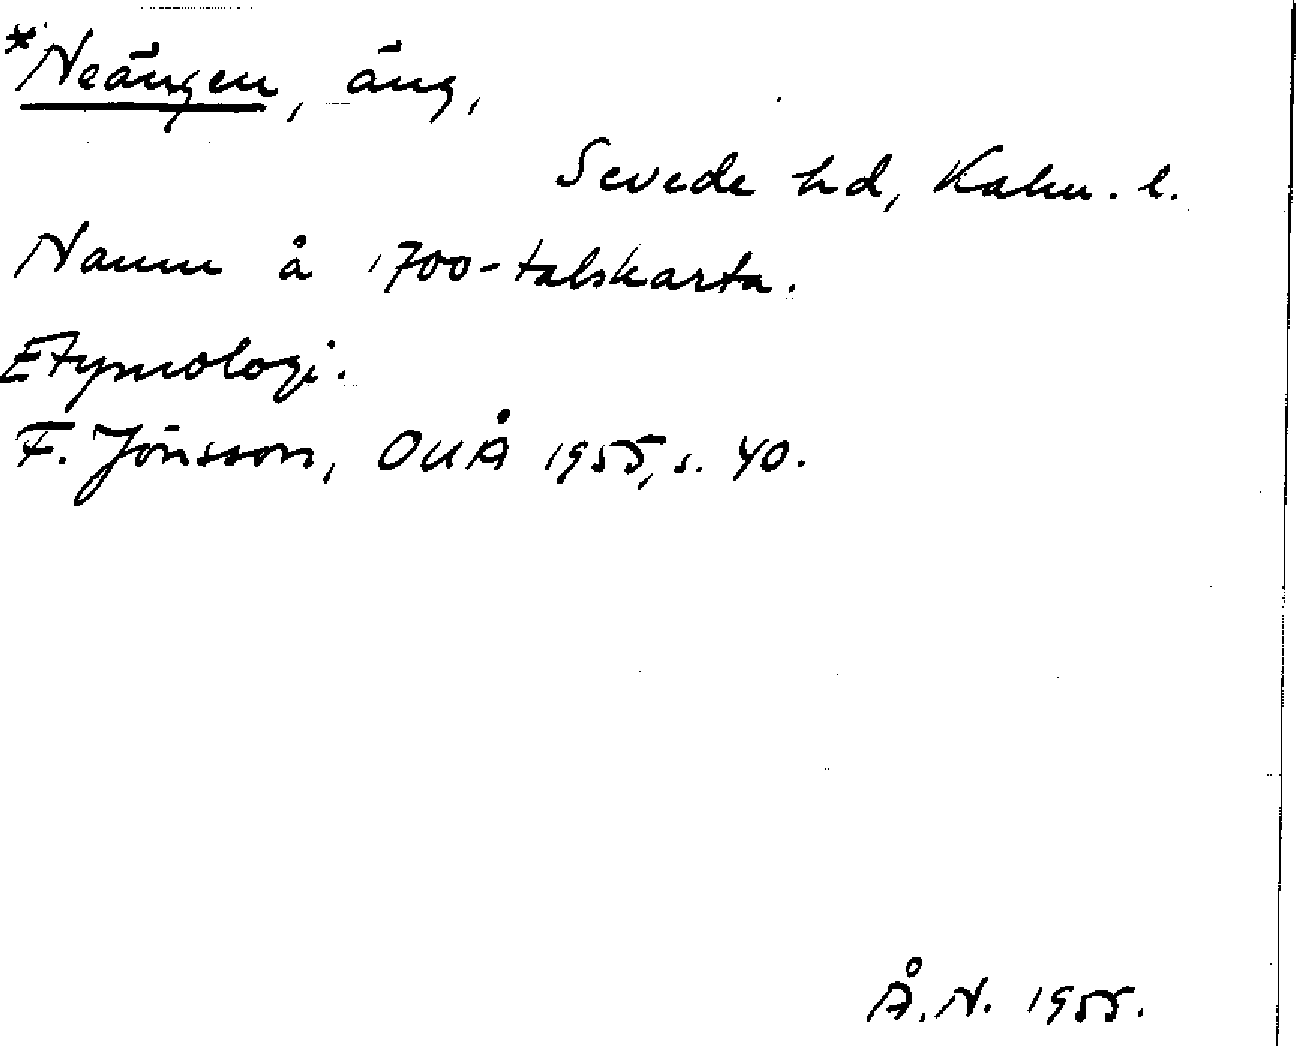 *Neängen, äng,
Sevede hd, Kalm. l.
Namn å 1700-talskarta.
Etymologi.
F. Jönsson, OUÅ 1955, s. 40.
Å. N. 1955.